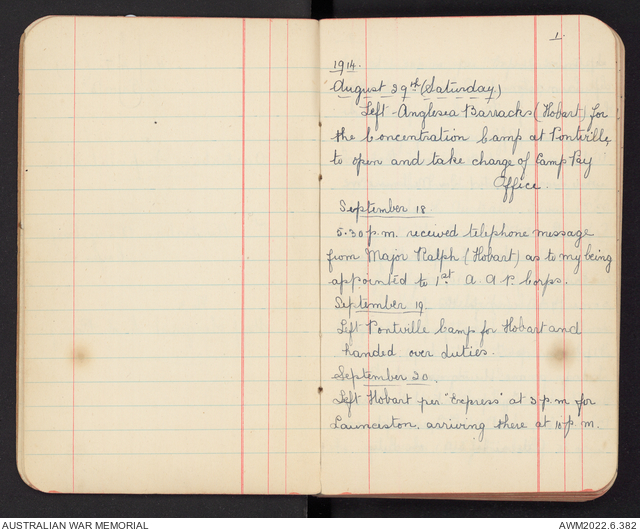 1.
1914.
August 29th (Saturday)
Left Anglesea Barracks (Hobart) for
the Concentration Camp at Pontville,
to open and take charge of Camp Pay
Office.
September 18
5.30 p.m. received telephone message
from Major Ralph (Hobart) as to my being
appointed to 1st A.A.P. Corps.
September 19
Left Pontville Camp for Hobart and
handed over duties.
September 20.
Left Hobart per "Express" at 3 p.m for
Launceston, arriving there at 10 p.m.
AUSTRALIAN WAR MEMORIAL
AWM2022.6.382